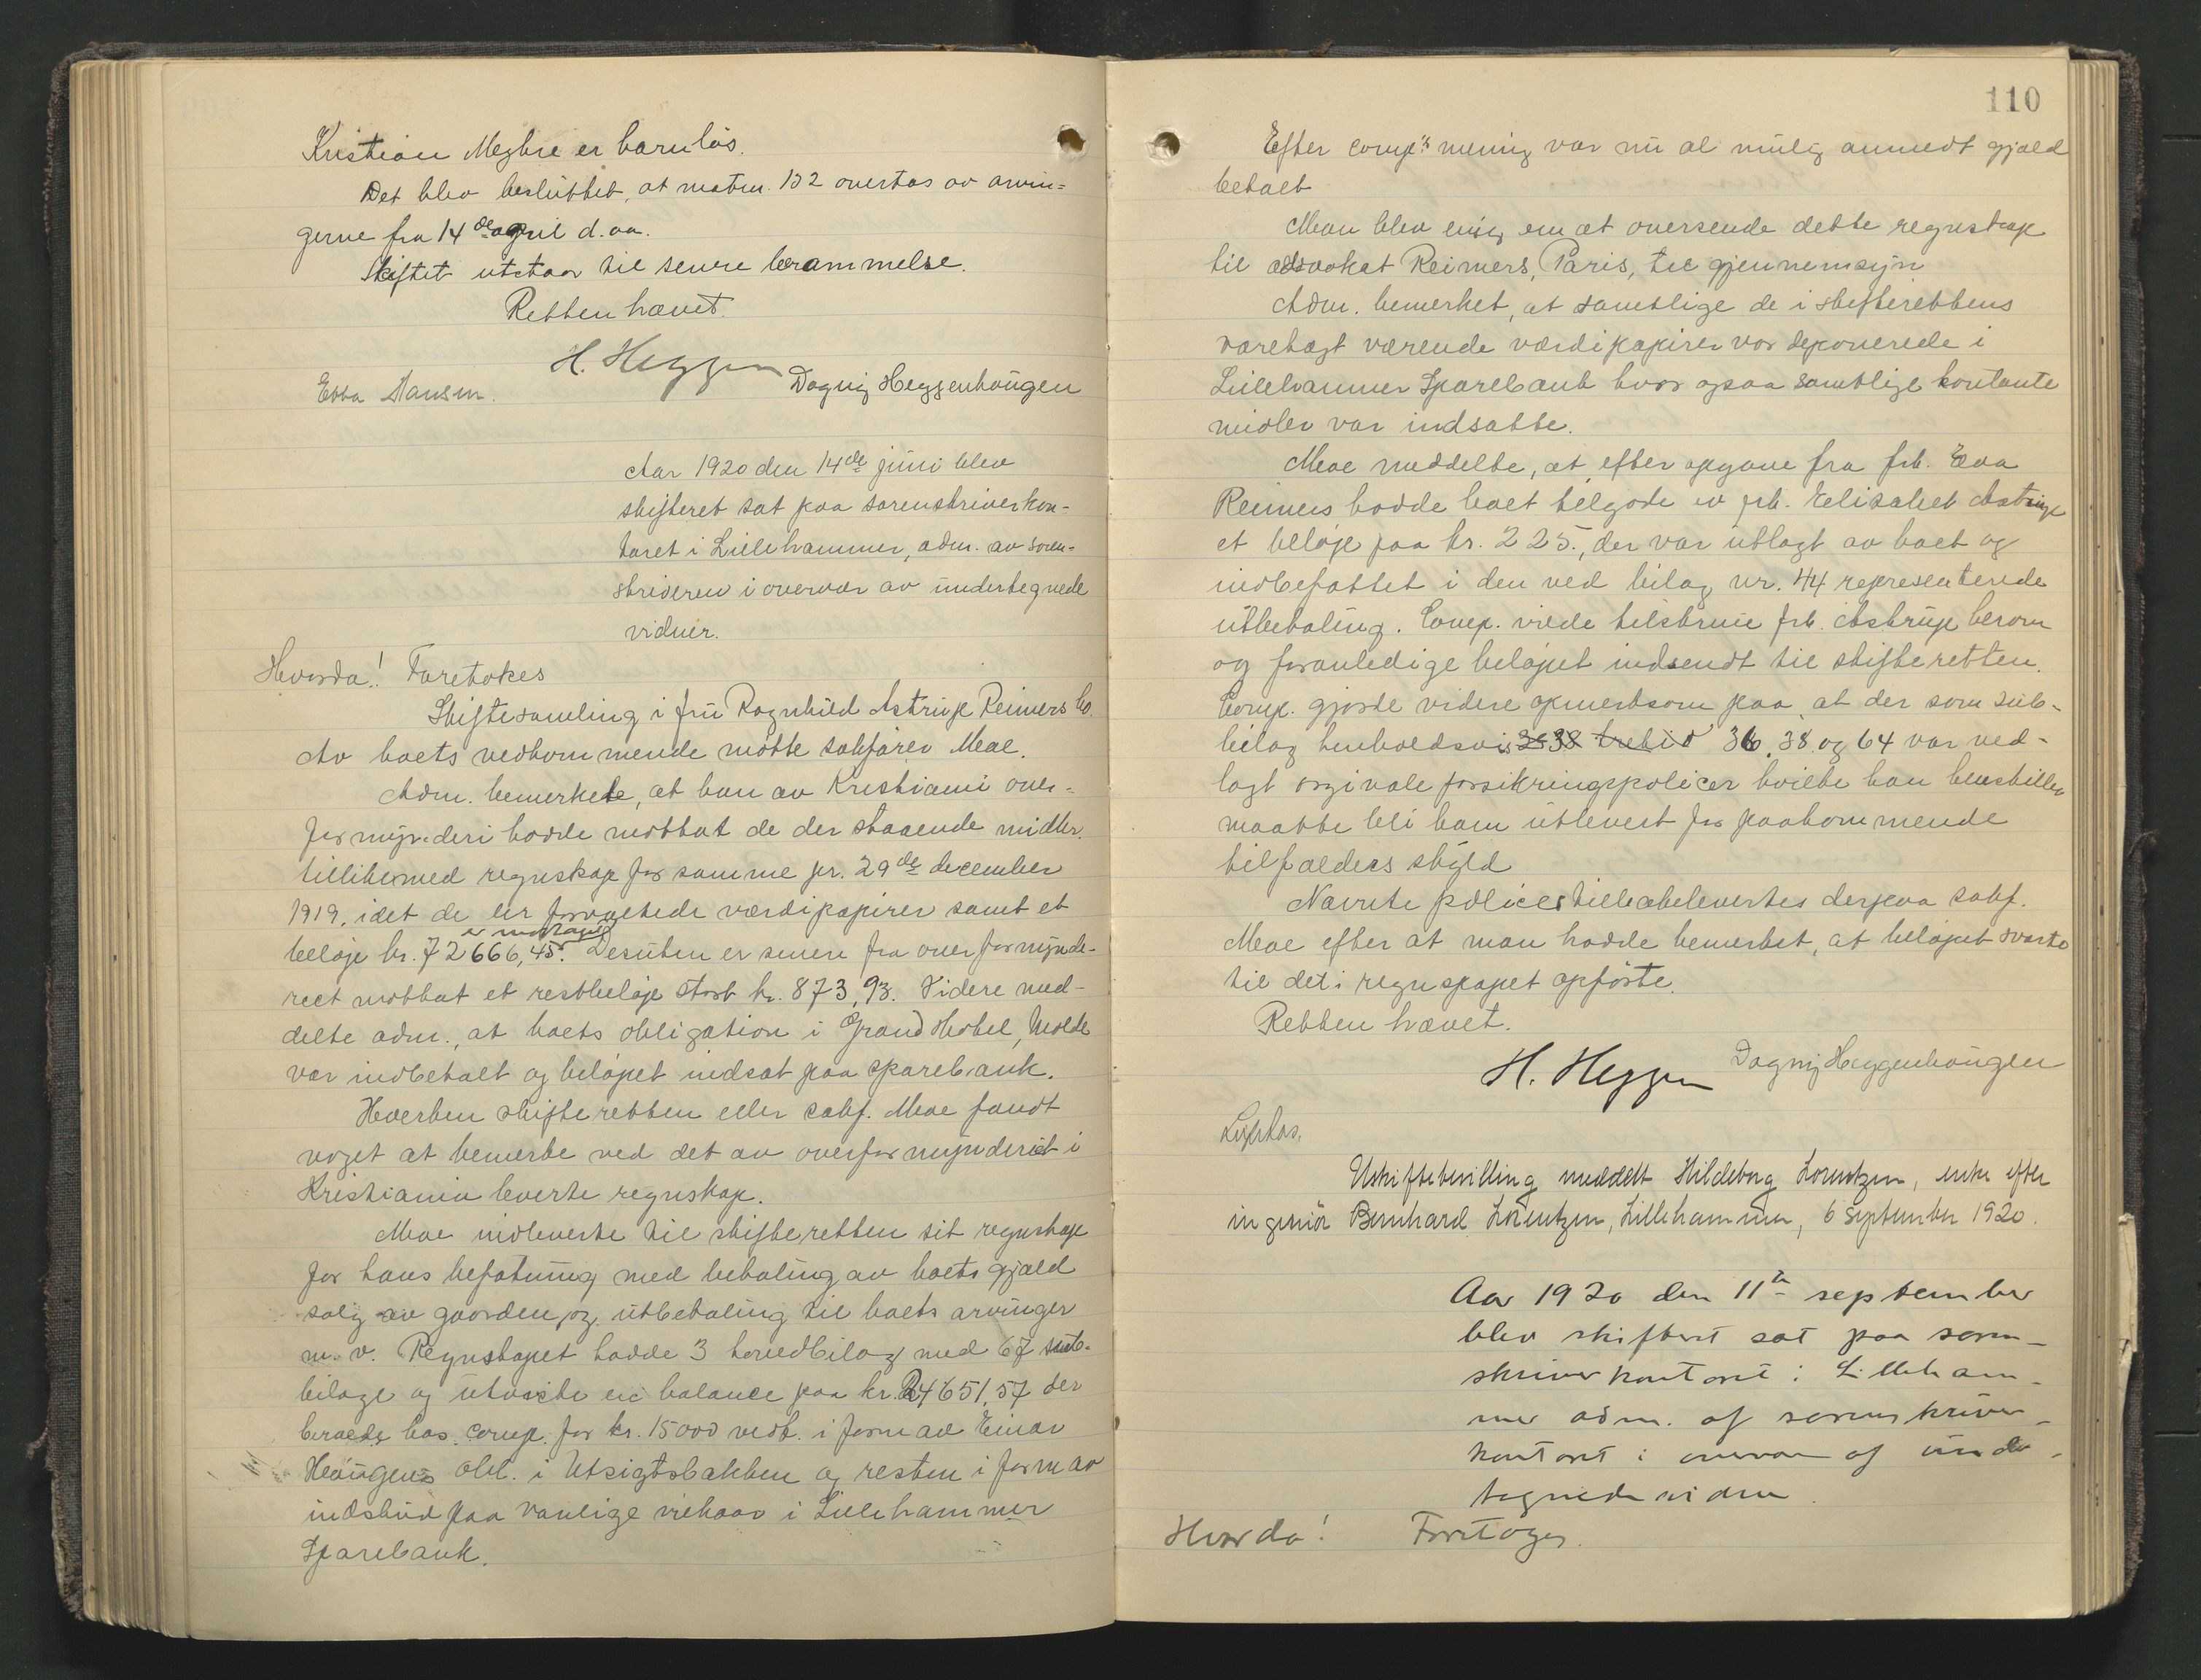 Kristian Mezbre er barnløs.
Det blev besluttet, at matrn. 132 overtas av arvin-
gerne fra 14de april d. aa.
Skiftet utstaar til senere berammelse.
Retten hævet.
H. Heggen
Ebba Hansen.
Dagny Heggenhougen
Aar 1920 den 14de juni blev
skifteret sat paa sorenskriverkon-
toret i Lillehammer, adm. av soren-
skriveren i overvær av undertegnede
vidner.
Hvorda! Foretokes
Skiftesamling i fru Ragnhild Astrup Reimers bo.
Av boets vedkommende møtte sakfører Moe.
Adm. bemerkede, at han av Kristiania over-
formynderi hadde mottat de der staaende midler
tillikemed regnskap for samme pr. 29de december
1919, idet de der forvaltede værdipapirer samt et
er mottaget
beløp kr. 72666,45. Desuten er senere fra overformynde-
riet mottat et restbeløp stort kr. 873,93. Videre med-
delte adm., at boets obligation i Grand Hotel, Molde
var indbetalt og beløpet indsat paa sparebank.
Hverken skifteretten eller sakf. Moe fandt
noget at bemerke ved det av overformynderiet i
Kristiania leverte regnskap.
Moe indleverte til skifteretten sit regnskap
for hans befatning med betaling av boets gjæld
salg av gaarden, og utbetaling til boets arvinger
m. v. Regnskapet hadde 3 hovedbilag med 67 sub-
bilage og utviste en balance paa kr. 24651,57 der
beroede hos comp. for kr. 15000 vedk. i form av Einar
Haugens obl. i Utsigtsbakken og resten i form av
indskud paa vanlige vilkaar i Lillehammer
Sparebank.
110
Efter comp's mening var nu al mulig anmeldt gjæld
betalt
Man blev enig om at oversende dette regnskap
til advokat Reimers, Paris, til gjennemsyn
Adm. bemerket, at samtlige de i skifterettens
varetægt værende værdipapirer var deponerede i
Lillehammer Sparebank hvor ogsaa samtlige kontante
midler var indsatte.
Moe meddelte, at efter opgave fra frk. Eva
Reimers hadde boet tilgode av frk. Elisabet Astrup
et beløp paa kr. 225., der var utlagt av boet og
indbefattet i den ved bilag nr. 44 representerede
utbetaling. Comp. vilde tilskrive frk. Astrup herom
og foranledige beløpet indsendt til skifteretten.
Comp. gjorde videre opmerksom paa, at der som sub-
bilag henholdsvis 36, 38 og 64 var ved-
lagt orginale forsikringspolicer hvilke han henstillet
maatte bli ham utlevert for paakommende
tilfælders skyld
Nævnte policer tilbakelevertes derpaa sakf.
Moe efter at man hadde bemerket, at beløpet svarte
til det i regnskapet opførte.
Retten hævet.
H. Heggen Dagny Heggenhougen
Uskiftebevilling meddelt Hildeborg Lorentzen, enke efter
ingeniør Bernhard Lorentzen, Lillehammer, 6 september 1920.
Aar 1920 den 11te september
blev skifteret sat paa soren-
skriverkontoret i Lilleham-
mer adm. af sorenskriver-
kontoret i overvær af under-
tegnede vidner.
Hvorda! Foretoges.